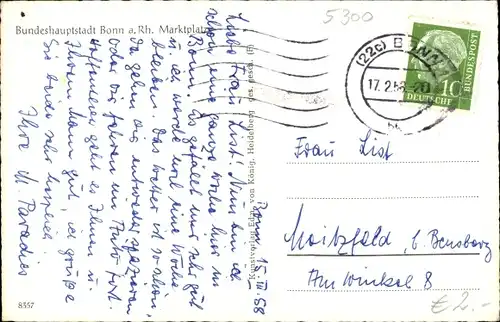 Bundeshauptstadt Bonn a. Rh. Marktplatz
5300
(22c) BONN
17. 2. 58
DEUTSCHE BUNDESPOST
10
Bonn, 15. II. 58
Liebe Frau List! Nun bin ich
schon eine ganze Woche hier in
Bonn. Es gefällt mir sehr gut
u. ich werde noch eine Woche
bleiben. Das Wetter ist so schön,
da gehen wir entweder spazieren
oder wir fahren im Auto fort.
Hoffentlich geht es Ihnen u.
Ihrem Mann gut, ich grüße
Sie beide sehr herzlich
Ihre M. Paradies
8357
Frau List
Moitzfeld, b. Bensberg
Am Winkel 8
€ 2.-